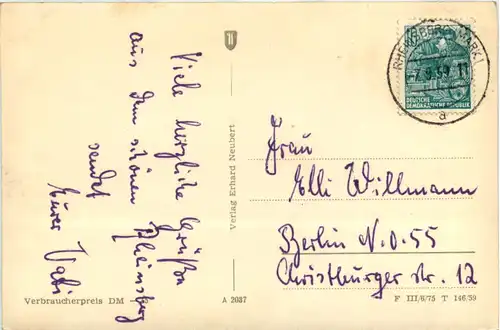 Viele herzliche Grüße
aus dem schönen Rheinsberg
sendet
Eurer Vati
Verbraucherpreis DM
Verlag Erhard Neubert
A 2037
RHEINSBERG (MARK)
a
DEUTSCHE
DEMOKRATISCHE REPUBLIK
Frau
Elli Willmann
Berlin N.O.55
Christburger str. 12
F III/6/75 T 146/59